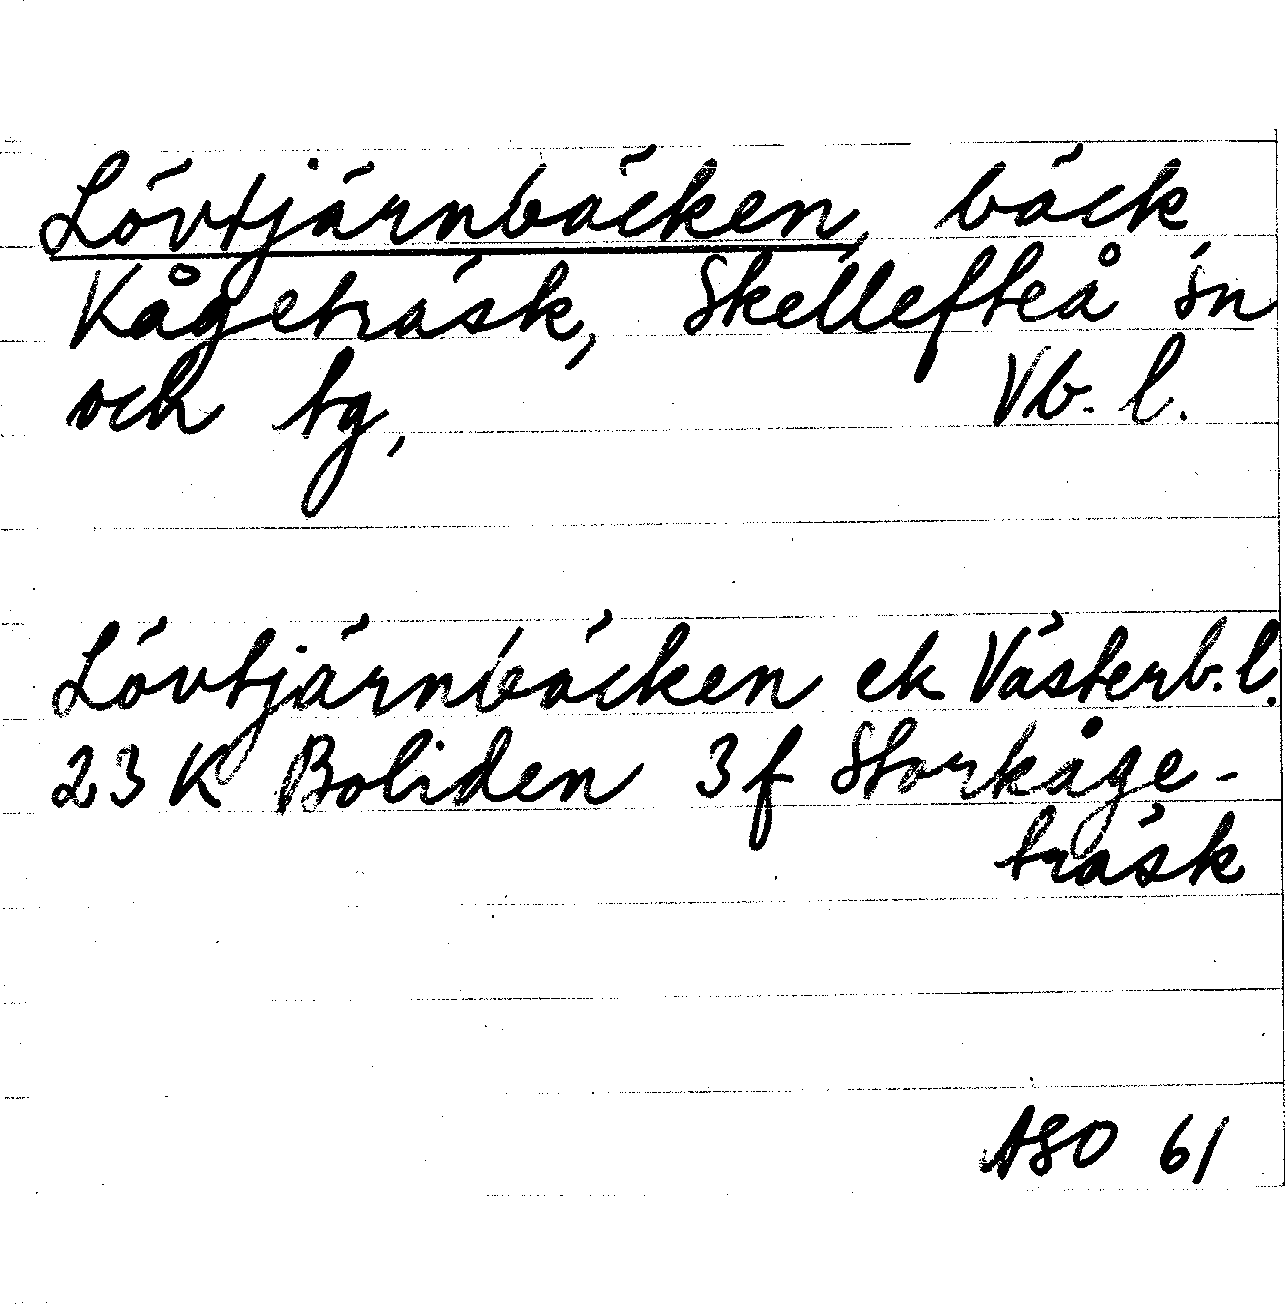 Lövtjärnbäcken, bäck
Kågeträsk, Skellefteå sn
och tg, Vb. l.
Lövtjärnbäcken ek Västerb. l.
23 K Boliden 3f Storkåge-
träsk
ASO 61